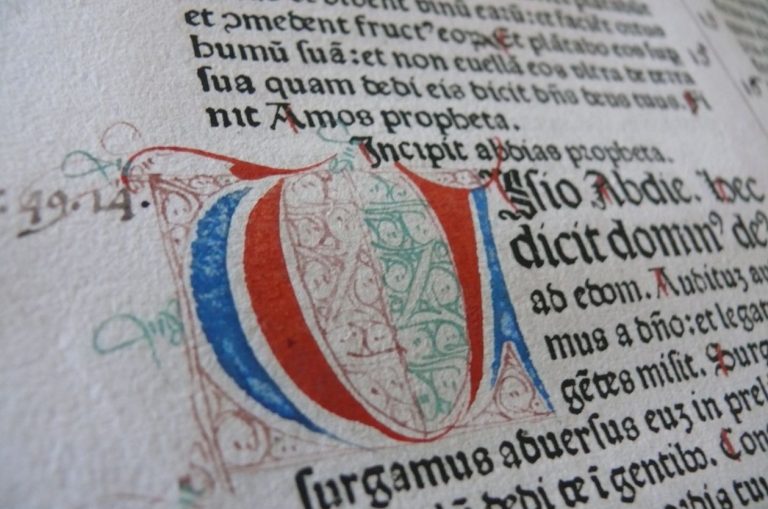 et ↄmedent fruct⁹ eoꝝ. Et plātabo eos sup
humū suā: et non euellā eos vltra de terra
sua quam dedi eis dicit dñs deus tuus. Fi
nit Amos propheta.
Incipit abdias propheta.
Visio Abdie. Hec
: 49. 14.
dicit domin⁹ de⁹
ad edom. Audituʒ au
mus a dño: et legat
gētes misit. Surg
surgamus aduersus euʒ in prel
dedi te ī gentibꝰ. Con